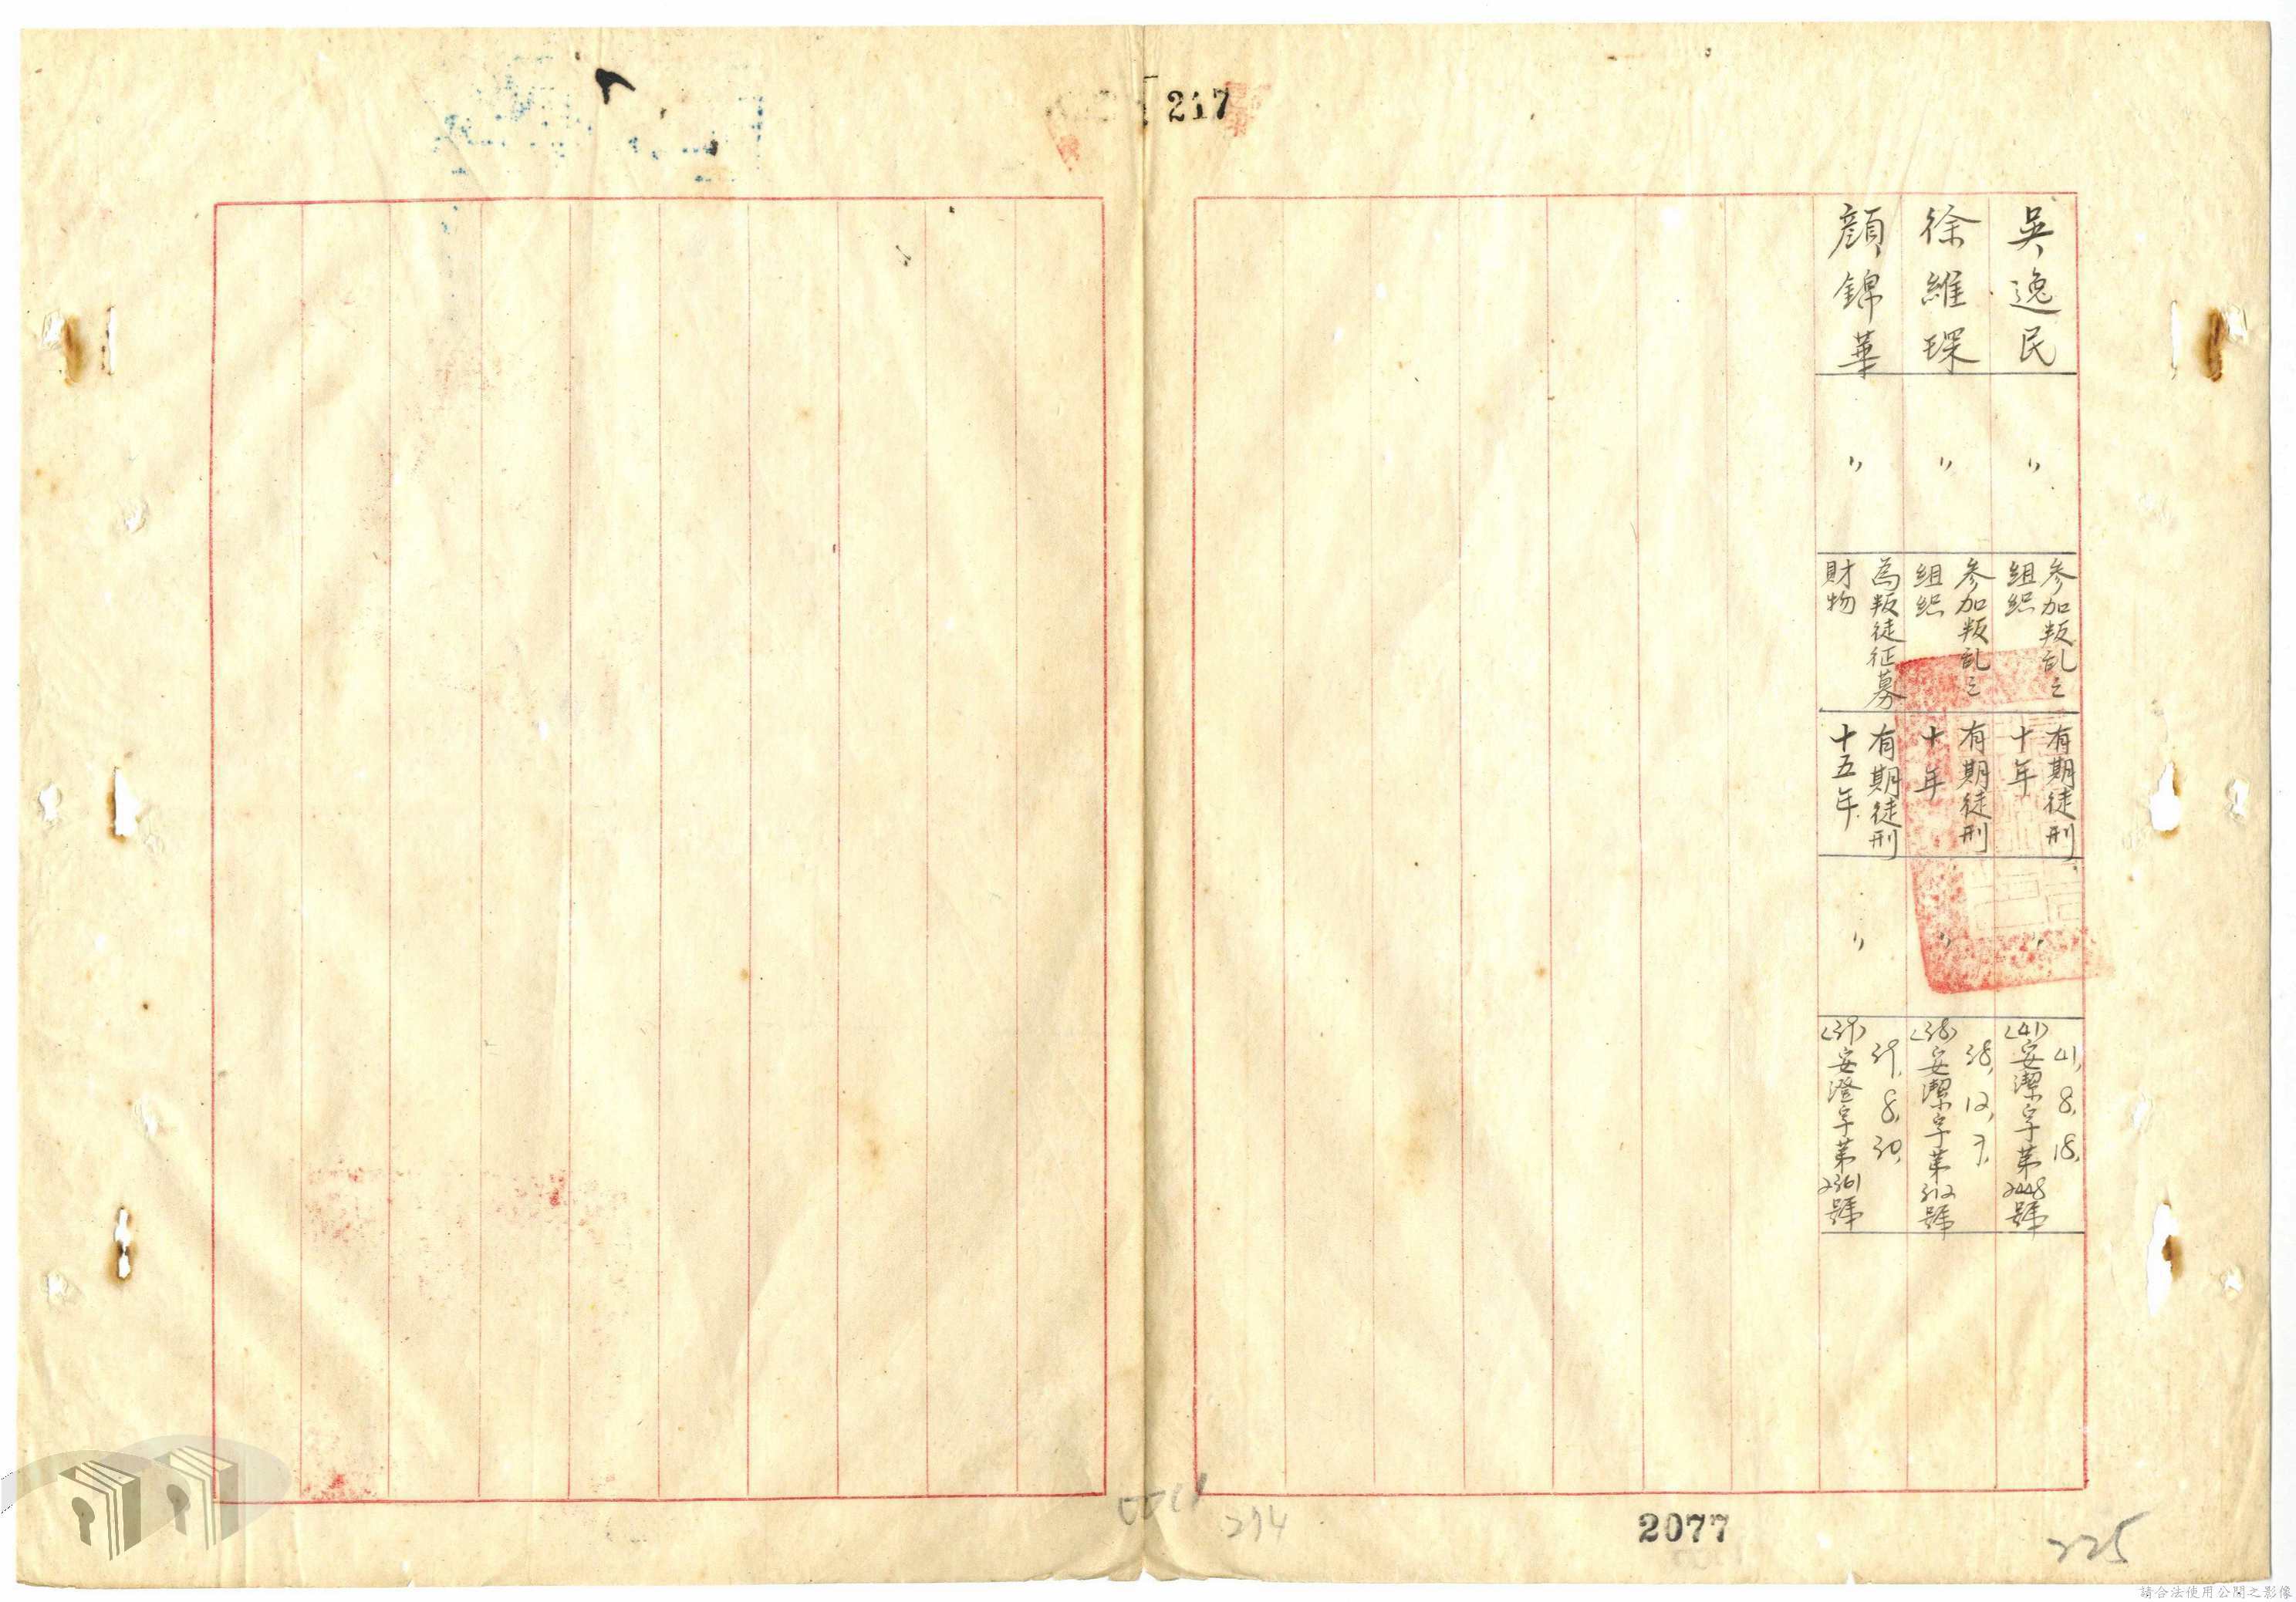 217
吳逸民
〃
參加叛乱之
組織
有期徒刑
十年
〃
41,8,18,
(41)安潔字第2448號
徐維琛
〃
參加叛乱之
組織
有期徒刑
十年
〃
38,12,7,
(38)安潔字第312號
顏錦華
〃
為叛徒征募
財物
有期徒刑
十五年
〃
39,8,30,
(39)安澄字第2361號
274
2077
225
請合法使用公開之影像